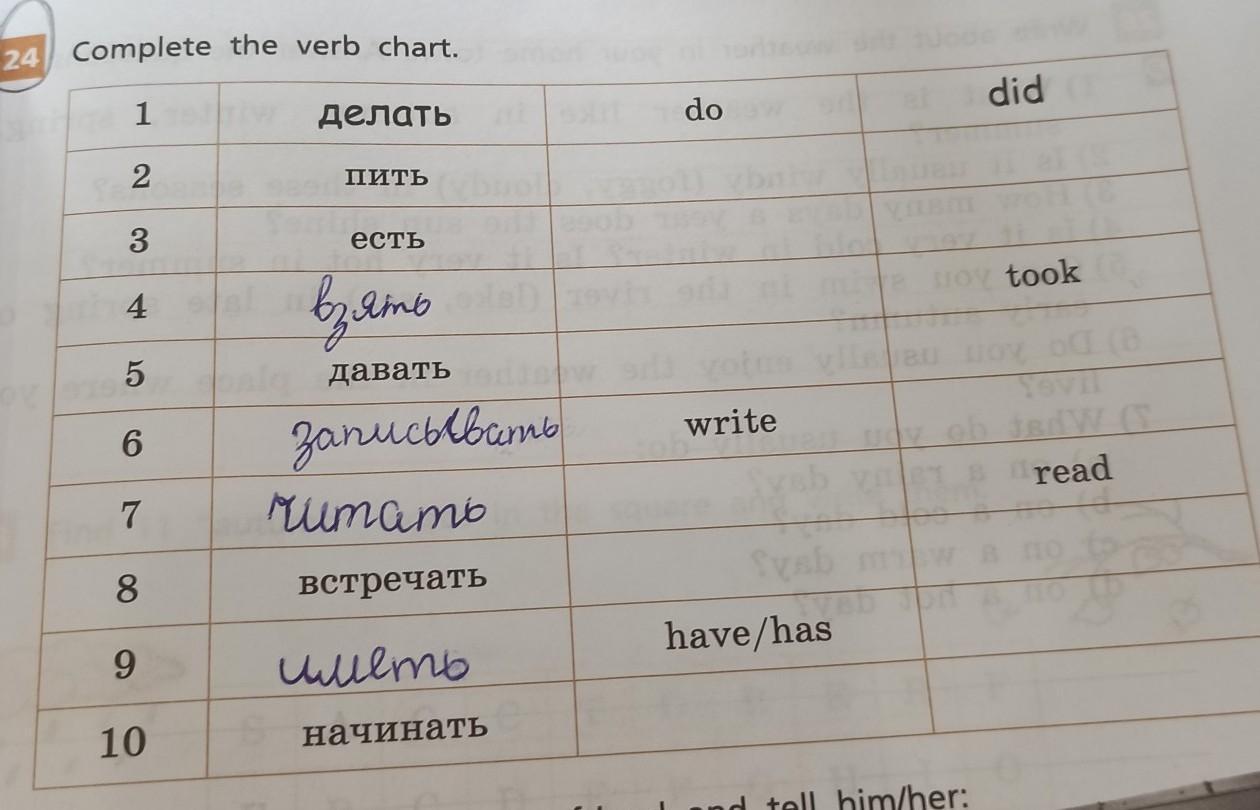 24 Complete the verb chart.
1 делать do did
2 пить
3 есть
4 взять took
5 давать
6 записывать write
7 читать read
8 встречать
9 иметь have/has
10 начинать
and tell him/her: